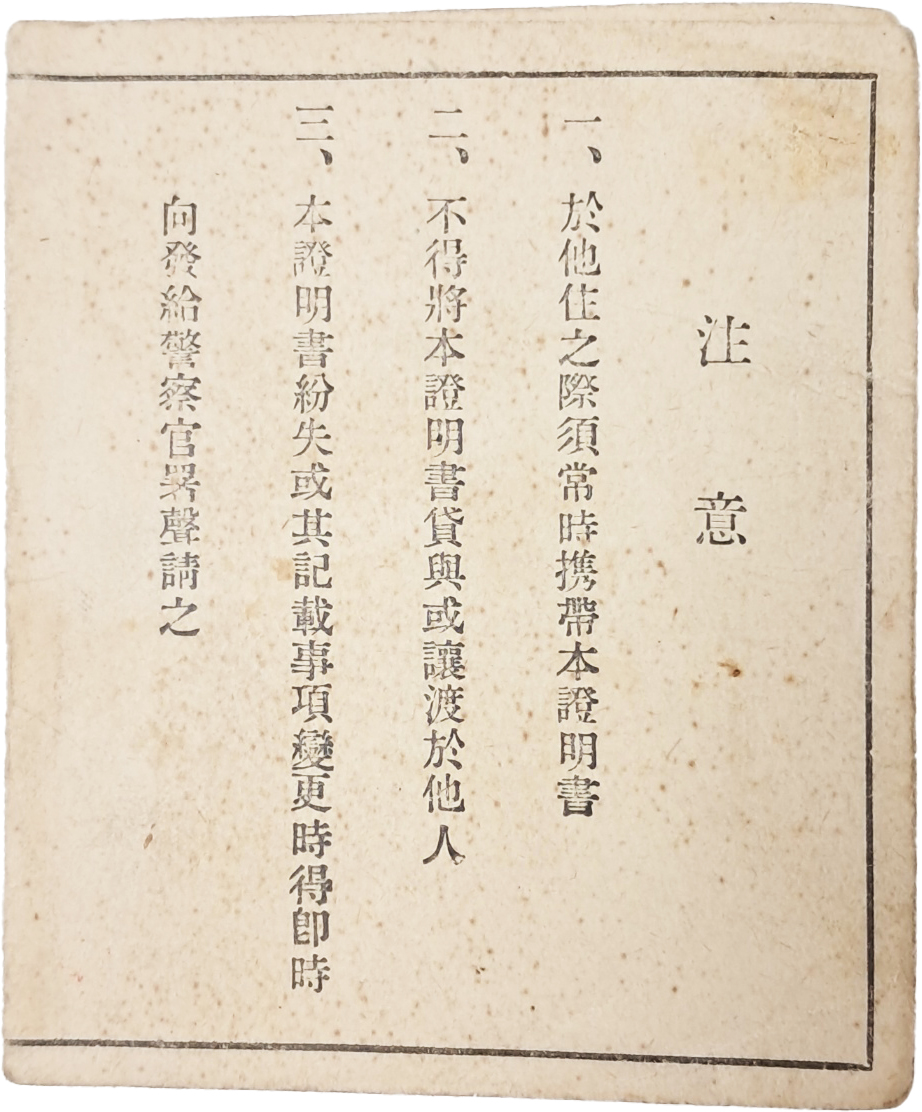 注意
一、於他住之際須常時携帶本證明書
二、不得將本證明書貸與或讓渡於他人
三、本證明書紛失或其記載事項變更時得卽時
向發給警察官署聲請之